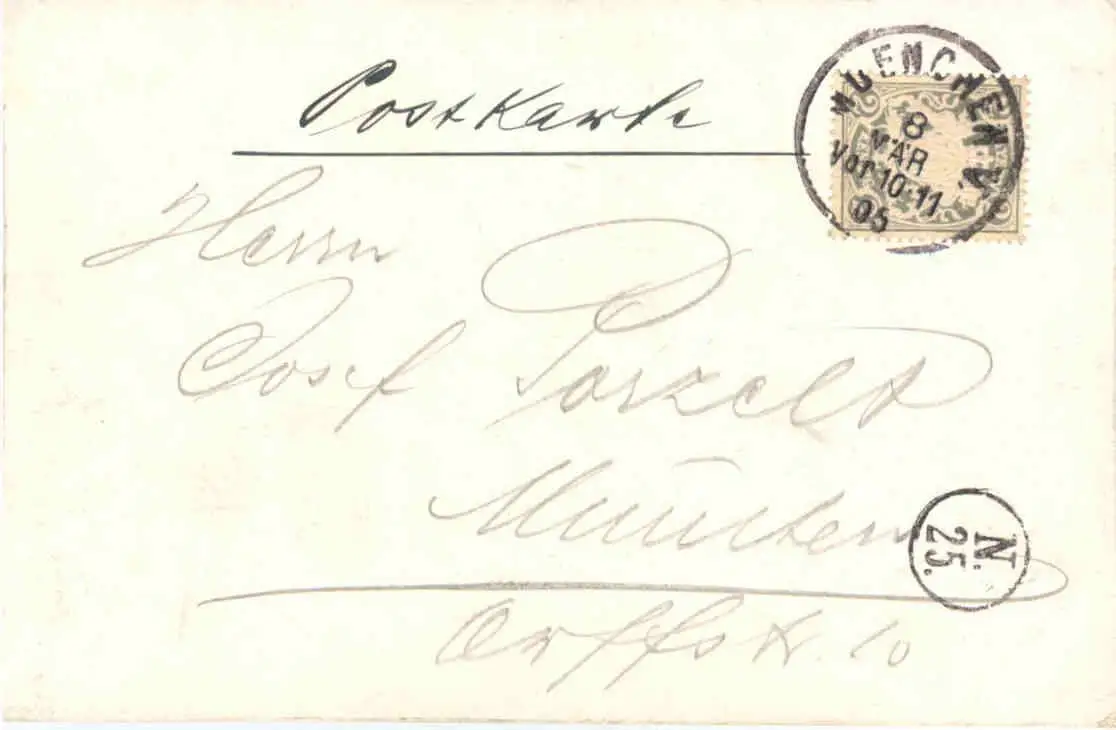 Postkarte
MUENCHEN V.
8
MÄR
Vor 10-11
05
Herrn
Josef Parzelt
München
N.
25.
Orffstr. 10